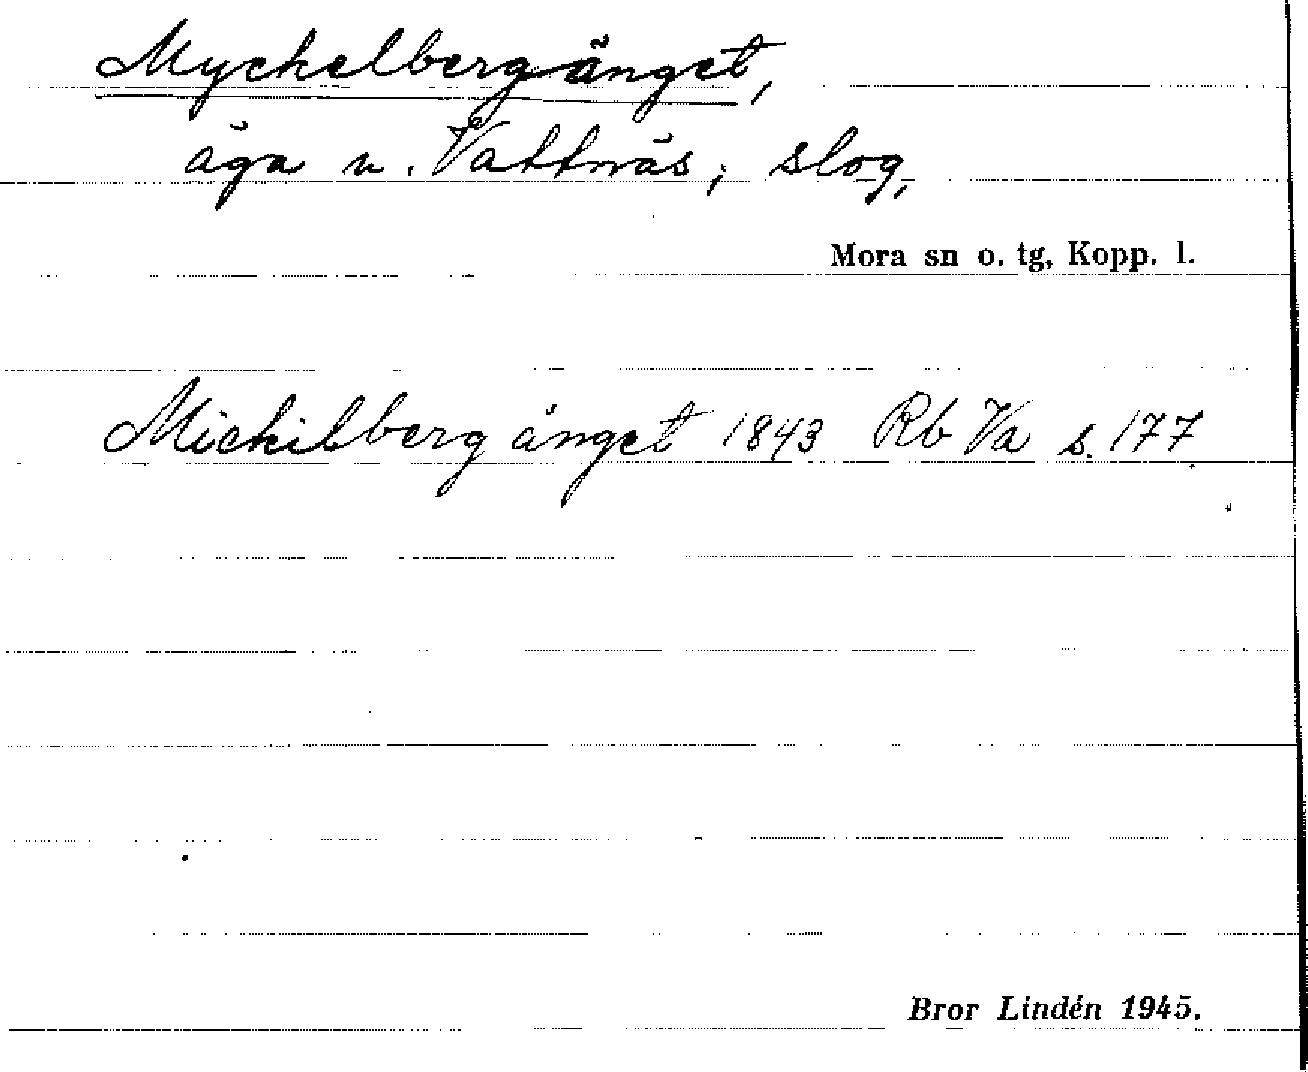 Myckelbergänget,
äga u. Vattnäs; slog,
Mora sn o. tg, Kopp. l.
Mickilberg änget 1843 Rb Va s. 177
Bror Lindén 1945.